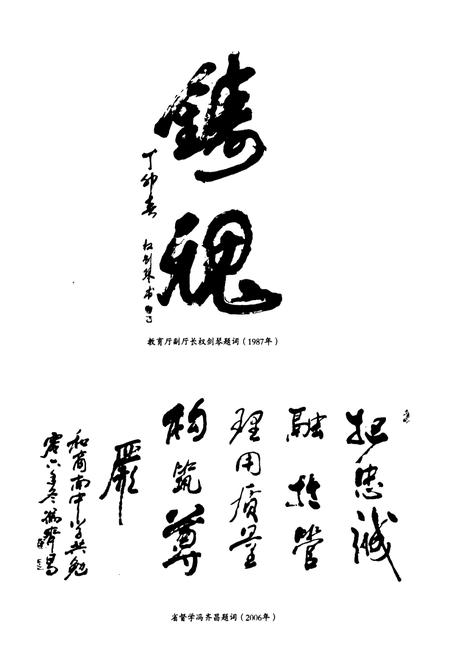 鑄
魂
丁卯春 权剑琴书
教育厅副厅长权剑琴题词（1987年）
把忠诚
融於管
理用质量
构筑尊
嚴
和商南中学共勉
零六年冬冯齊昌
省督学冯齐昌题词（2006年）